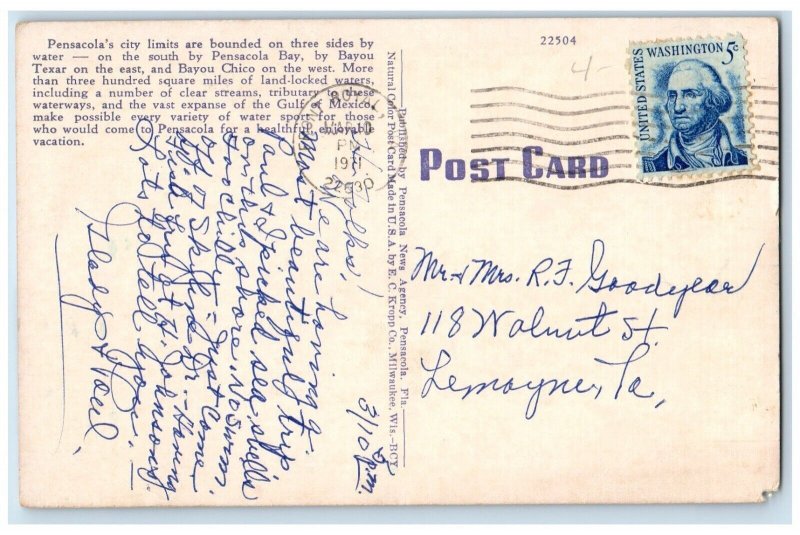 Pensacola's city limits are bounded on three sides by
water — on the south by Pensacola Bay, by Bayou
Texar on the east, and Bayou Chico on the west. More
than three hundred square miles of land-locked waters,
including a number of clear streams, tributary to these
waterways, and the vast expanse of the Gulf of Mexico,
make possible every variety of water sport for those
who would come to Pensacola for a healthful, enjoyable
vacation.
3/10 P.M.
Hi Folks!
We are having a
most beautiful trip.
Paul & I picked sea shells
on
too chilly no swim.
off of Skyline Dr. - Having
lunch
Lots to tell you.
Glady & Paul
Published by Pensacola News Agency, Pensacola, Fla.
Natural Color Post Card Made in U.S.A. by E. C. Kropp Co., Milwaukee, Wis.—BCY
22504
4-
PM
1971
UNITED STATES
WASHINGTON 5c
POST CARD
Mr. & Mrs. R. F. Goodyear
118 Walnut St.
Lemoyne, Pa,